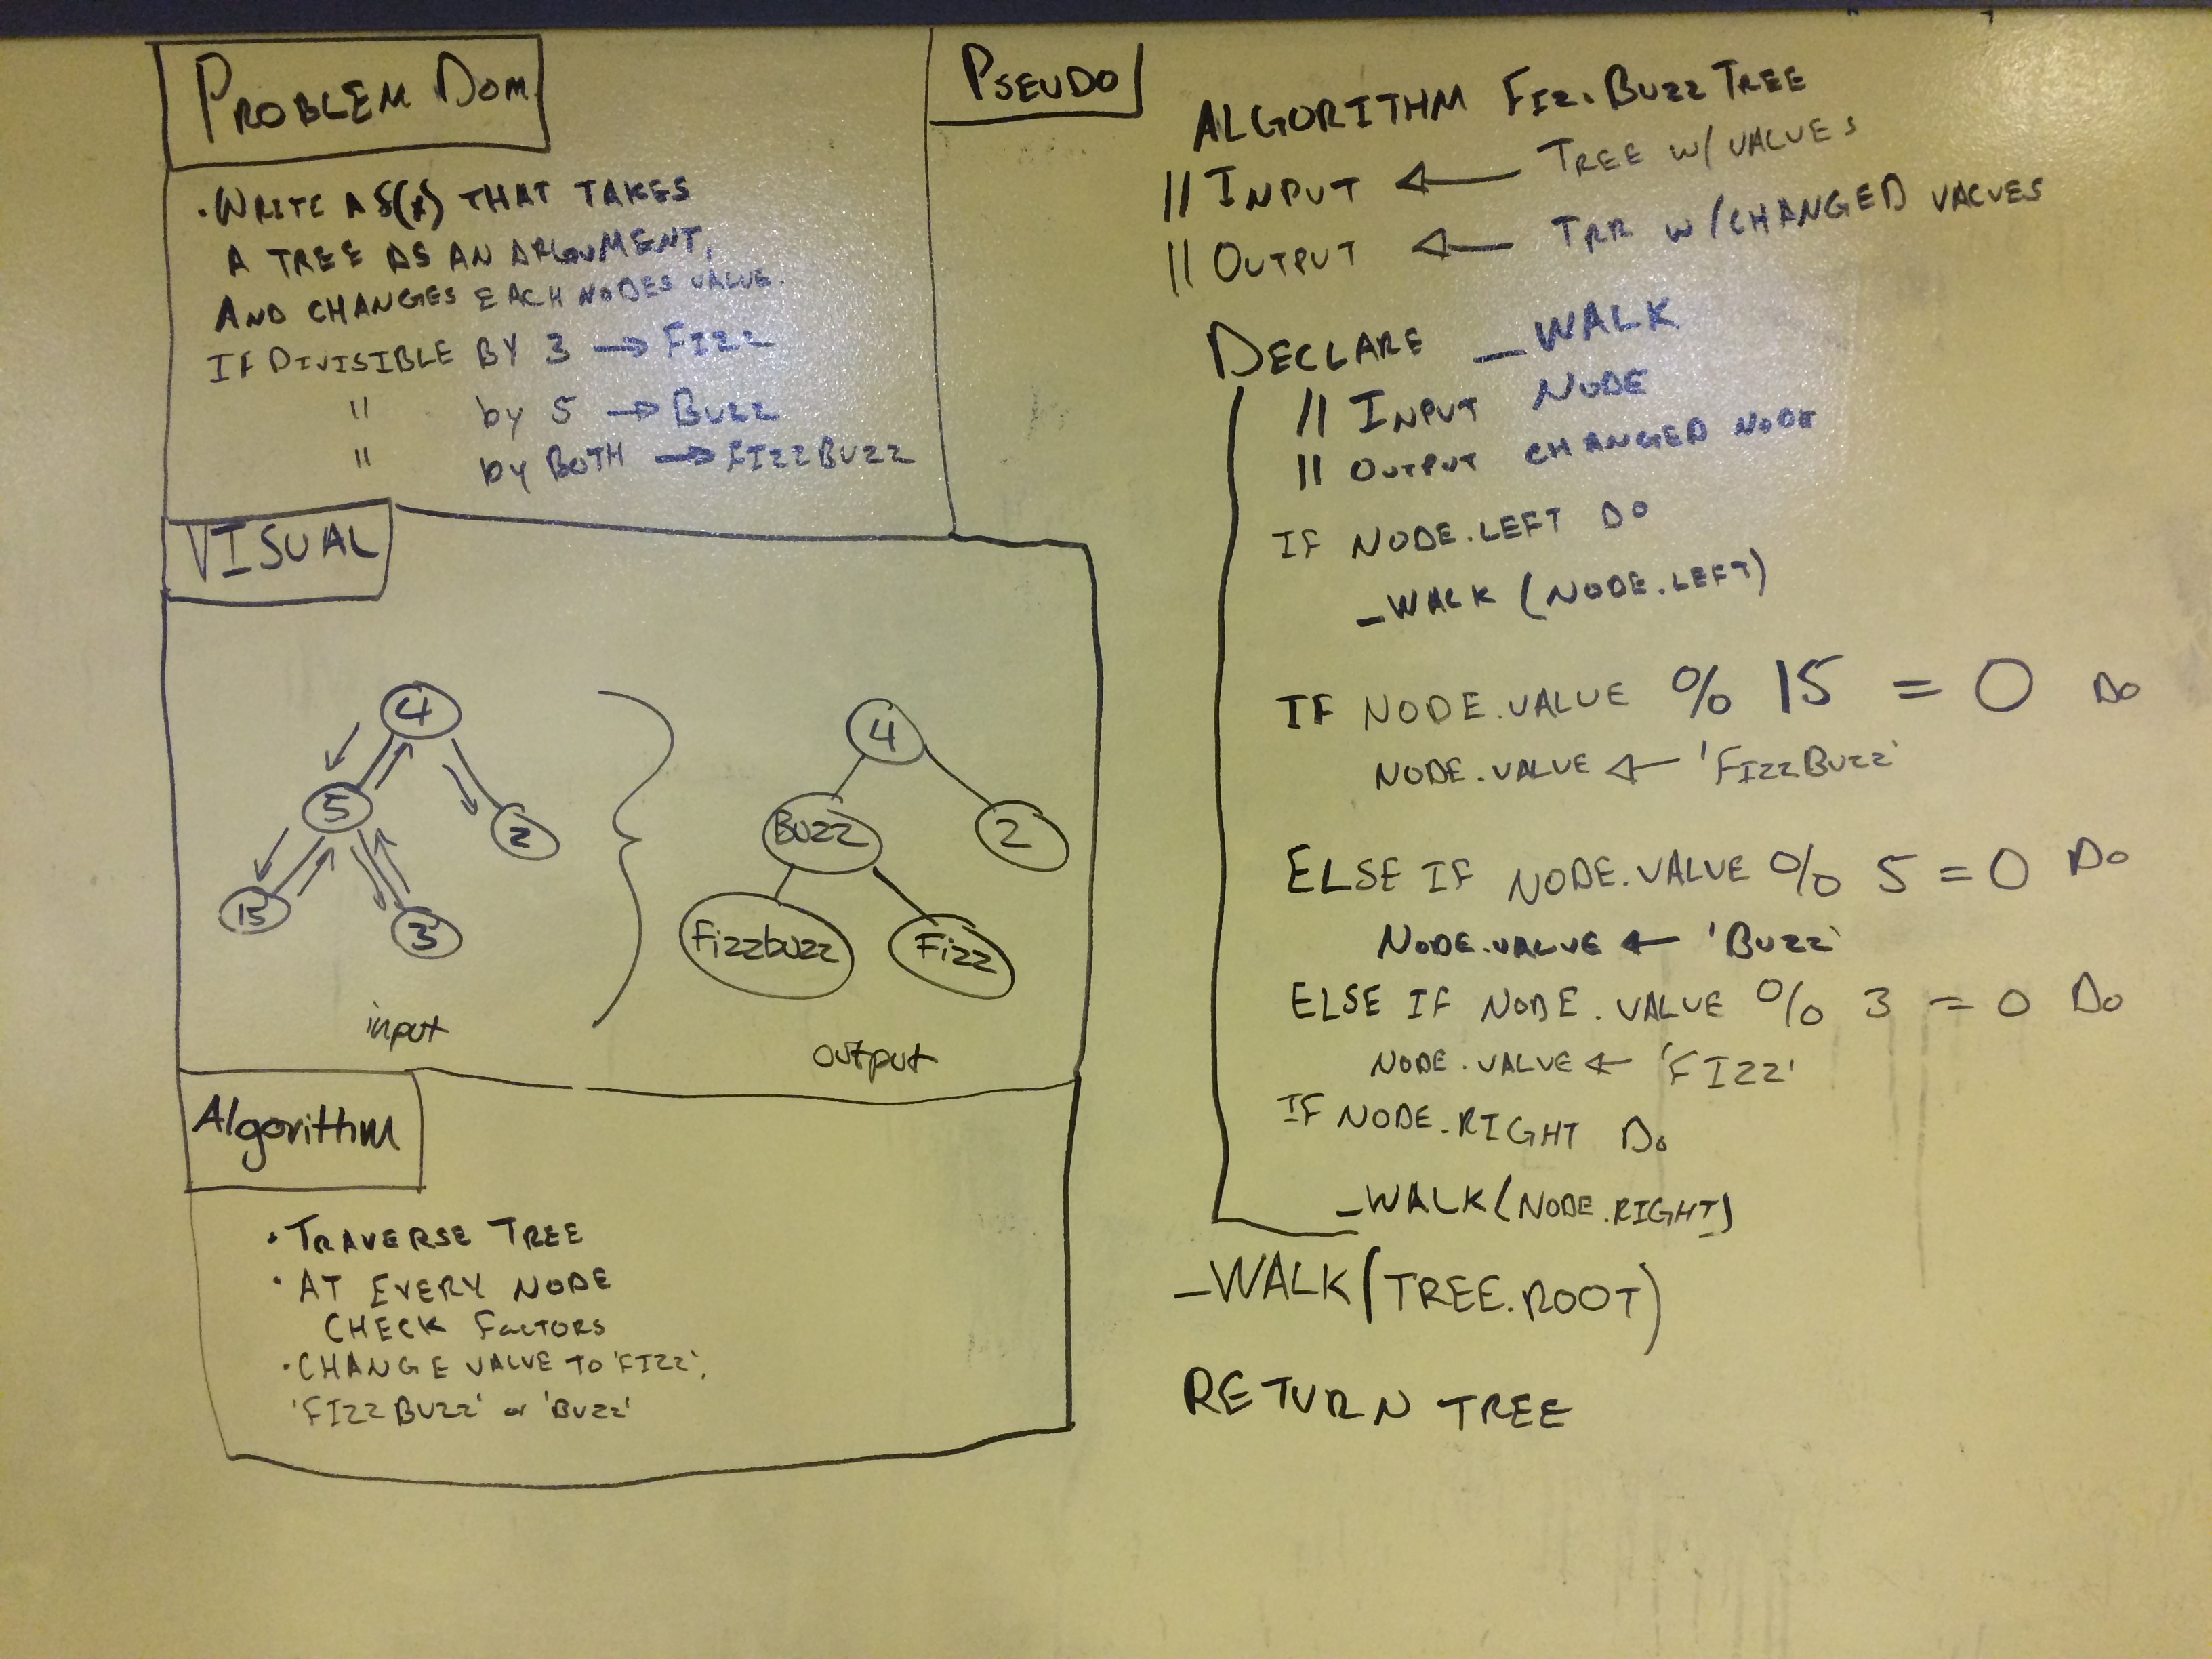 PROBLEM DOM.
· WRITE A f(x) THAT TAKES
A TREE AS AN ARGUMENT,
AND CHANGES EACH NODES VALUE.
IF DIVISIBLE BY 3 → FIZZ
" by 5 → BUZZ
" by BOTH → FIZZBUZZ
VISUAL
4
5
2
15
3
input
4
BUZZ
2
Fizzbuzz
Fizz
output
Algorithm
· TRAVERSE TREE
· AT EVERY NODE
CHECK FACTORS
· CHANGE VALUE TO 'FIZZ',
'FIZZBUZZ' or 'BUZZ'
PSEUDO
ALGORITHM FIZZBUZZ TREE
// INPUT ← TREE W/ VALUES
// OUTPUT ← TRR W/ CHANGED VALUES
DECLARE _WALK
// INPUT NODE
// OUTPUT CHANGED NODE
IF NODE.LEFT DO
_WALK (NODE.LEFT)
IF NODE.VALUE % 15 = 0 DO
NODE.VALUE ← 'FIZZBUZZ'
ELSE IF NODE.VALUE % 5 = 0 DO
NODE.VALUE ← 'BUZZ'
ELSE IF NODE.VALUE % 3 = 0 DO
NODE.VALUE ← 'FIZZ'
IF NODE.RIGHT DO
_WALK (NODE.RIGHT)
_WALK (TREE.ROOT)
RETURN TREE